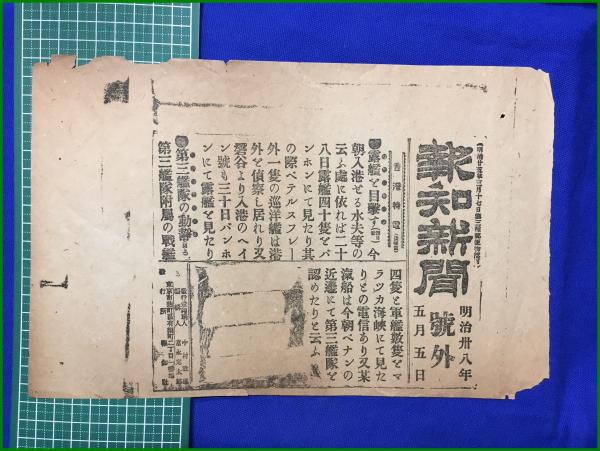 報知新聞
號外
明治卅八年
五月五日
香港特電
◉露艦を目撃す 今
朝入港せる水夫等の
云ふ處に依れば二十
八日露艦四十隻をバ
ンホンにて見たり其
の際ベテルスフレー
外一隻の巡洋艦は港
外を偵察し居れり又
磐谷より入港のヘイ
ン號も三十日バンホ
ンにて露艦を見たり
◉第三艦隊の動靜
第三艦隊附屬の戰艦
四隻と軍艦數隻とマ
ラツカ海峡にて見た
りとの電信あり又某
汽船は今朝ペナンの
近邊にて第三艦隊を
認めたりと云ふ